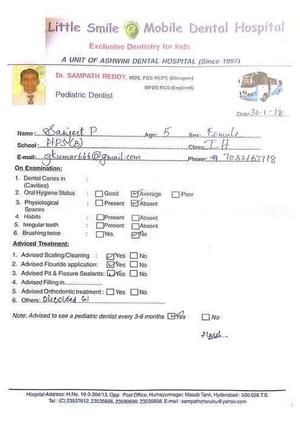 Little Smile Mobile Dental Hospital
Exclusive Dentistry for kids
A UNIT OF ASHWINI DENTAL HOSPITAL (Since 1997)
Dr. SAMPATH REDDY, MDS, FDS RCPS (Glasgow)
MFDS RCS (England)
Pediatric Dentist
Date: 31-1-18
Name: P Age: 5 Sex: Female
School: HPS (B) Class: I H
E-mail: gkumar666@gmail.com Phone:
On Examination:
1. Dental Caries in :
(Cavities)
2. Oral Hygiene Status : Good Average Poor
3. Physiological : Present Absent
Spaces
4. Habits : Present Absent
5. Irregular teeth : Present Absent
6. Brushing twice : Yes No
Adviced Treatment:
1. Advised Scaling/Cleaning : Yes No
2. Advised Flouride application: Yes No
3. Advised Pit & Fissure Sealants: Yes No
4. Advised Filling in
5. Advised Orthodontic treatment : Yes No
6. Others:
Note: Advised to see a pediatric dentist every 3-6 months Yes No
Hospital Address: H.No. 10-3-304/13, Opp. Post Office, Humayunnagar, Masab Tank, Hyderabad - 500 028.T.S.
Tel: (C) 23537612, 23535656, 23590690, 23535658. E-mail : sampathcheruku@yahoo.com